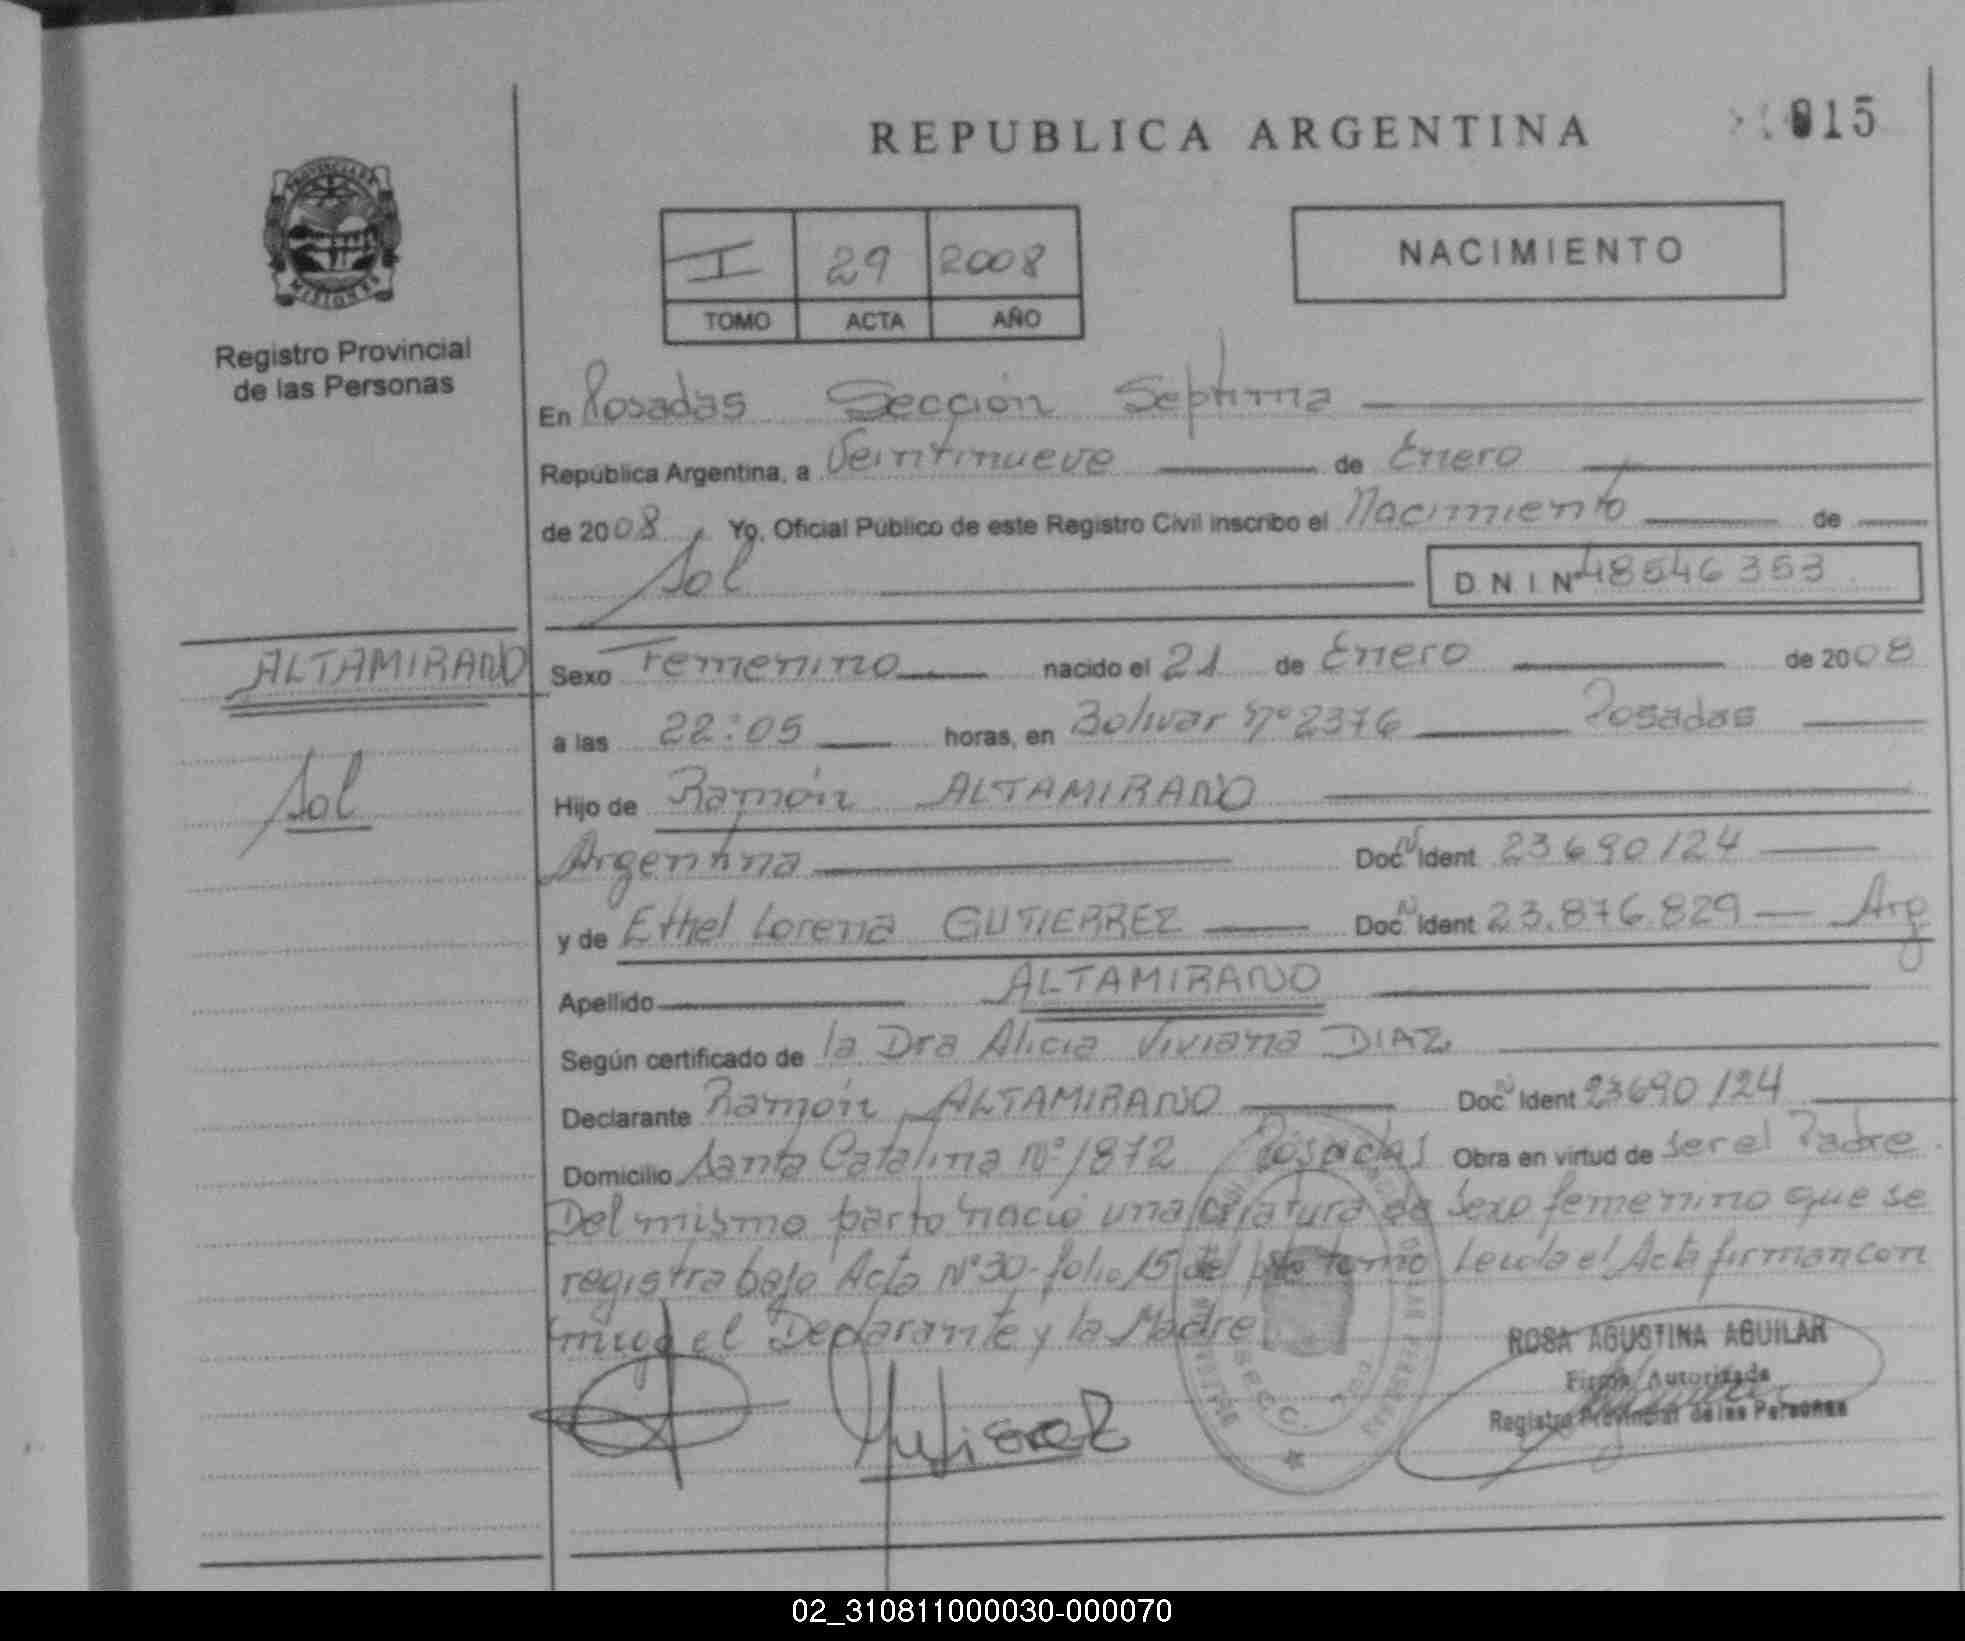 REPUBLICA ARGENTINA
015
PROVINCIA DE
MISIONES
Registro Provincial
de las Personas
I 29 2008
TOMO ACTA AÑO
NACIMIENTO
En Posadas Sección Septima
República Argentina, a Veintinueve de Enero
de 2008, Yo, Oficial Público de este Registro Civil inscribo el Nacimiento de
Sol D N I Nº 48546353
ALTAMIRANO
Sol
Sexo Femenino nacido el 21 de Enero de 2008
a las 22:05 horas, en Bolivar Nº 2376 Posadas
Hijo de Ramón ALTAMIRANO
Argentina Doc N Ident 23690124
y de Ethel Lorena GUTIERREZ Doc N Ident 23.876.829 Arg
Apellido ALTAMIRANO
Según certificado de la Dra Alicia Viviana DIAZ
Declarante Ramón ALTAMIRANO Doc N Ident 23690124
Domicilio Santa Catalina Nº 1872 Posadas Obra en virtud de ser el Padre.
Del mismo parto nació una criatura de sexo femenino que se
registra bajo Acta Nº 30- folio 15 del tomo Leida el Acta firman con
migo el Declarante y la Madre
Gutierrez
ROSA AGUSTINA AGUILAR
Firma Autorizada
Registro Provincial de las Personas
02_310811000030-000070